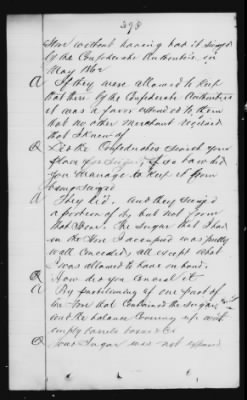 398
Store without having had it seized
by the Confederate Authorities, in
May 1862
A If they were allowed to keep
that there by the Confederate Authorities
it was a favor extended to them
that no other merchant received
that I know of
Q Did the Confederates search your
place for sugar, & if so how did
you manage to keep it from
being seized
A They did. And they seized
a portion of it, but not from
that Store. The sugar that I had
in the Store I occupied was pretty
well concealed, all except what
I was allowed to have on hand.
Q How did you conceal it
A By partitioning of one part of
the Store that contained the sugar,
and the balance covering up with
empty barrels boxes &c
Q Your Sugar was not